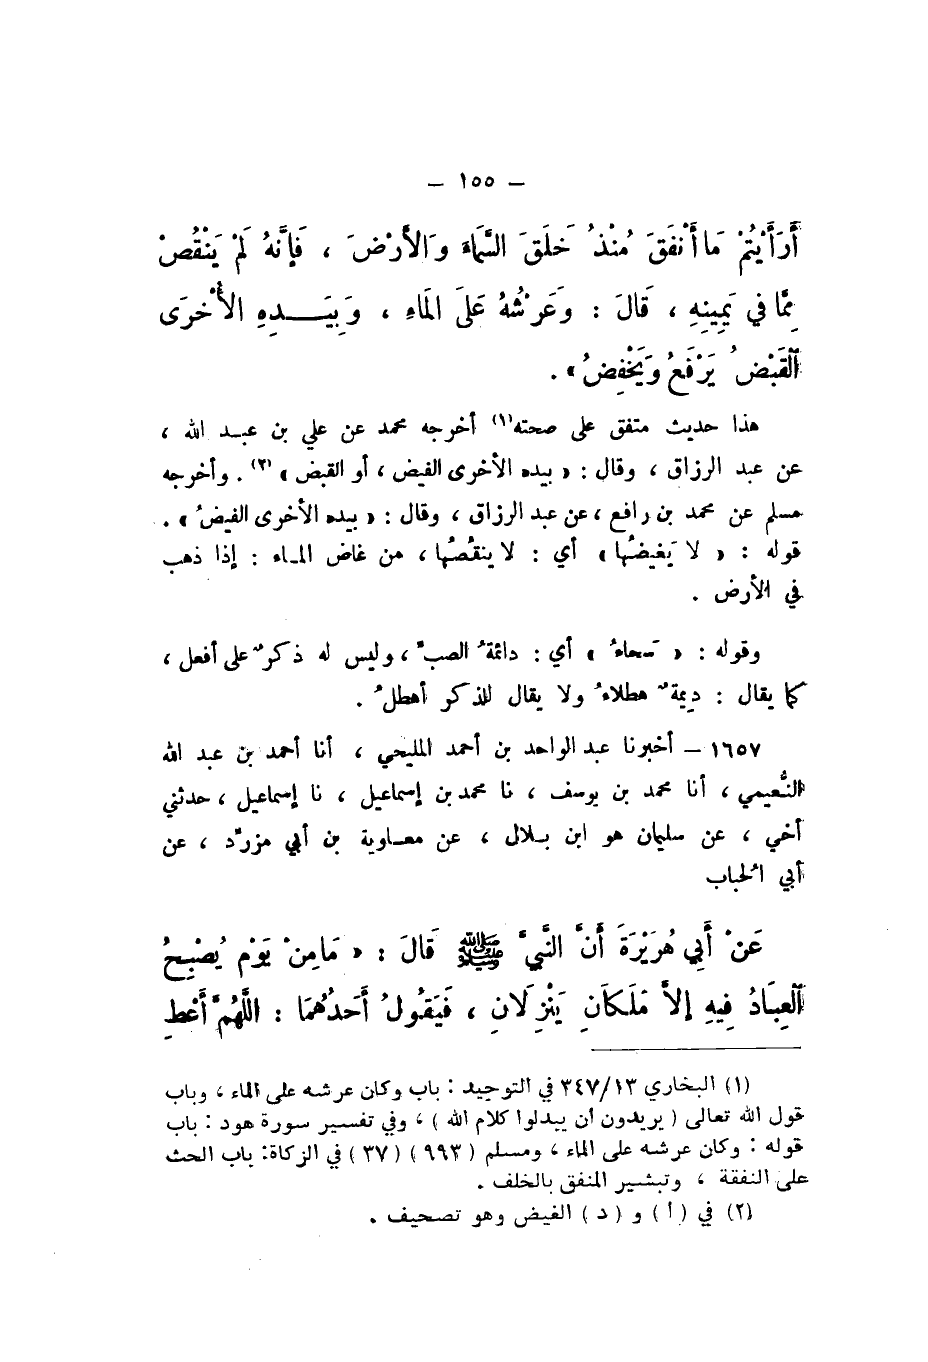 – ١٥٥ –
أَرَأَيْتُمْ مَا أَنْفَقَ مُنْذُ خَلَقَ السَّمَاءَ وَالأَرْضَ ، فَإِنَّهُ لَمْ يَنْقُصْ
مِمَّا في يَمِينِهِ ، قَالَ : وَعَرْشُهُ عَلَى المَاءِ ، وَبِيَدِهِ الأُخْرَى
القَبْضُ يَرْفَعُ وَيَخْفِضُ » .
هذا حديث متفق على صحته (١) أخرجه محمد عن علي بن عبد الله ،
عن عبد الرزاق ، وقال : « بيده الأخرى الفيض ، أو القبض » (٢) . وأخرجه
مسلم عن محمد بن رافع ، عن عبد الرزاق ، وقال : « بيده الأخرى الفيضُ » .
قوله : « لا يَغيضُها » أي : لا ينقُصُها ، من غاض الماء : إذا ذهب
في الأرض .
وقوله : « سَحاءُ » أي : دائمةُ الصبِّ ، وليس له ذكرٌ على أفعل ،
كما يقال : ديمةٌ هطلاءُ ولا يقال للذكر أهطلُ .
١٦٥٧ – أخبرنا عبد الواحد بن أحمد المليحي ، أنا أحمد بن عبد الله
النُّعيمي ، أنا محمد بن يوسف ، نا محمد بن إسماعيل ، نا إسماعيل ، حدثني
أخي ، عن سليمان هو ابن بلال ، عن معاوية بن أبي مزرِّد ، عن
أبي الحُباب
عَنْ أَبِي هُرَيْرَةَ أَنَّ النَّبِيَّ ﷺ قَالَ : « مَا مِنْ يَوْمٍ يُصْبِحُ
العِبَادُ فِيهِ إلاَّ مَلَكَانِ يَنْزِلَانِ ، فَيَقُولُ أَحَدُهُمَا : اللَّهُمَّ أَعْطِ
(١) البخاري ٣٤٧/١٣ في التوحيد : باب وكان عرشه على الماء ، وباب
قول الله تعالى ( يريدون أن يبدلوا كلام الله ) ، وفي تفسير سورة هود : باب
قوله : وكان عرشه على الماء ، ومسلم ( ٩٩٣ ) ( ٣٧ ) في الزكاة : باب الحث
على النفقة ، وتبشير المنفق بالخلف .
(٢) في ( أ ) و ( د ) الغيض وهو تصحيف .